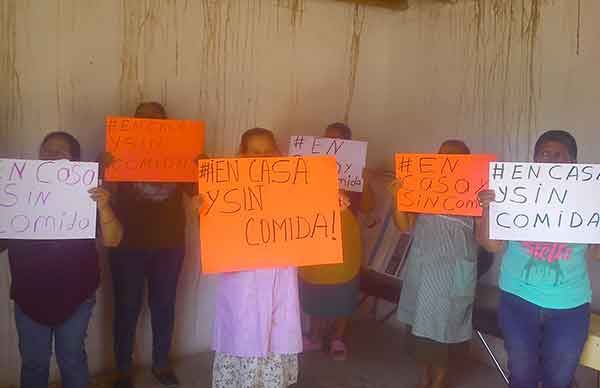 EN CASA
SIN
Comida
# EN CASA
Y SIN
COMIDA!
#¡EN CASA
Y SIN
COMIDA!
# EN
CASA Y
SIN
COMIDA
# EN
CASA Y
SIN COMI
# EN CASA
Y SIN
COMIDA
Stella